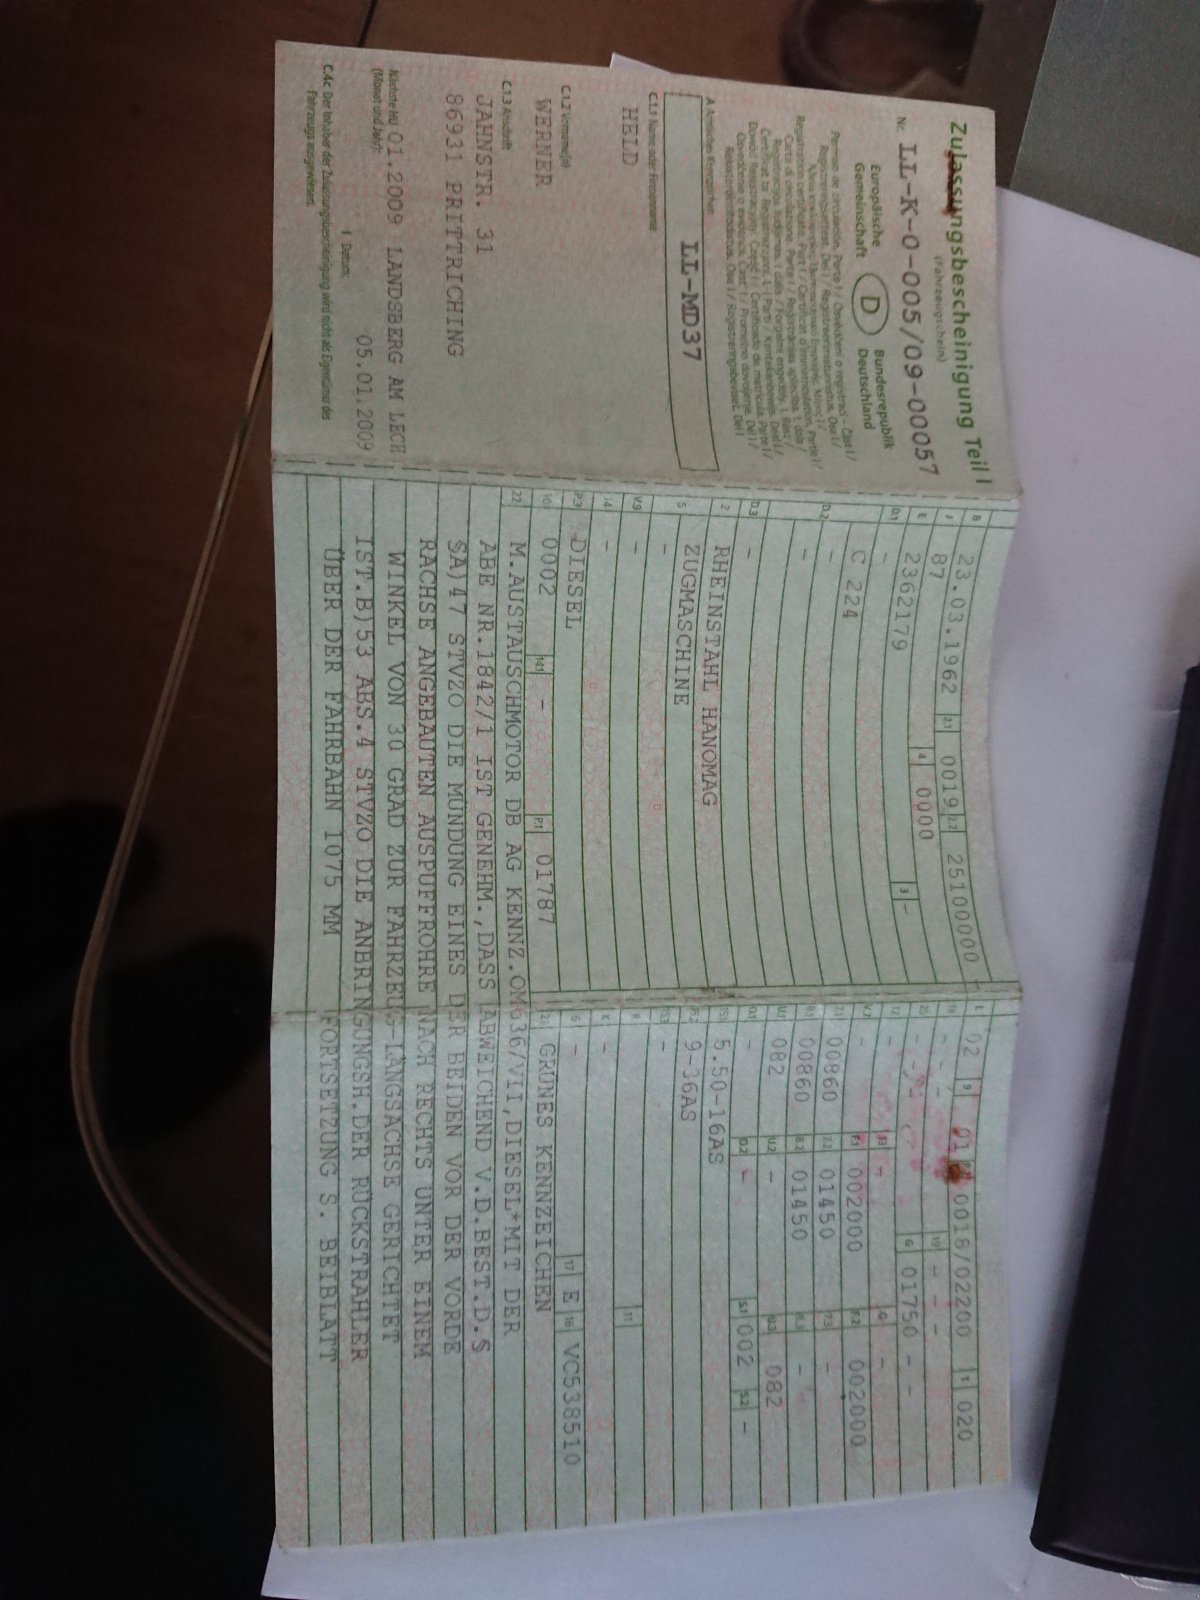 Zulassungsbescheinigung Teil I
(Fahrzeugschein)
Nr. LL-K-0-005/09-00057
Europäische
Gemeinschaft
D
Bundesrepublik
Deutschland
A Amtliches Kennzeichen
LL-MD37
C.1.1 Name oder Firmenname
HELD
C.1.2 Vorname(n)
WERNER
C.1.3 Anschrift
JAHNSTR. 31
86931 PRITTRICHING
Nächste HU 01.2009 LANDSBERG AM LECH
(Monat und Jahr):
I Datum:
05.01.2009
C.4c Der Inhaber der Zulassungsbescheinigung wird nicht als Eigentümer des
Fahrzeugs ausgewiesen.
B 23.03.1962 2.1 0019 2.2 25100000
J 87 4 0000
E 2362179 3 -
D.1 -
C 224
D.2 -
-
D.3 -
2 RHEINSTAHL HANOMAG
5 ZUGMASCHINE
-
V.9 -
14 -
P.3 DIESEL
10 0002 14.1 - P.1 01787
22 M.AUSTAUSCHMOTOR DB AG KENNZ.OM636/VII,DIESEL*MIT DER
ABE NR.1842/1 IST GENEHM.,DASS ABWEICHEND V.D.BEST.D.S
SA)47 STVZO DIE MÜNDUNG EINES DER BEIDEN VOR DER VORDE
RACHSE ANGEBAUTEN AUSPUFFROHRE NACH RECHTS UNTER EINEM
WINKEL VON 30 GRAD ZUR FAHRZEUG-LÄNGSACHSE GERICHTET
IST.B)53 ABS.4 STVZO DIE ANBRINGUNGSH.DER RÜCKSTRAHLER
ÜBER DER FAHRBAHN 1075 MM FORTSETZUNG S. BEIBLATT
L 02 9 01 0018/02200 T 020
18 - - 19 - - -
20 - - G 01750 - -
12 - 13 - Q -
V.7 - F.1 002000 F.2 002000
7.1 00860 7.2 01450 7.3 -
8.1 00860 8.2 01450 8.3 -
U.1 082 U.2 - U.3 082
O.1 - O.2 - S.1 002 S.2 -
15.1 5.50-16AS
15.2 9-36AS
15.3 -
R 11
K -
6 - 17 E 16 VC538510
21 GRÜNES KENNZEICHEN